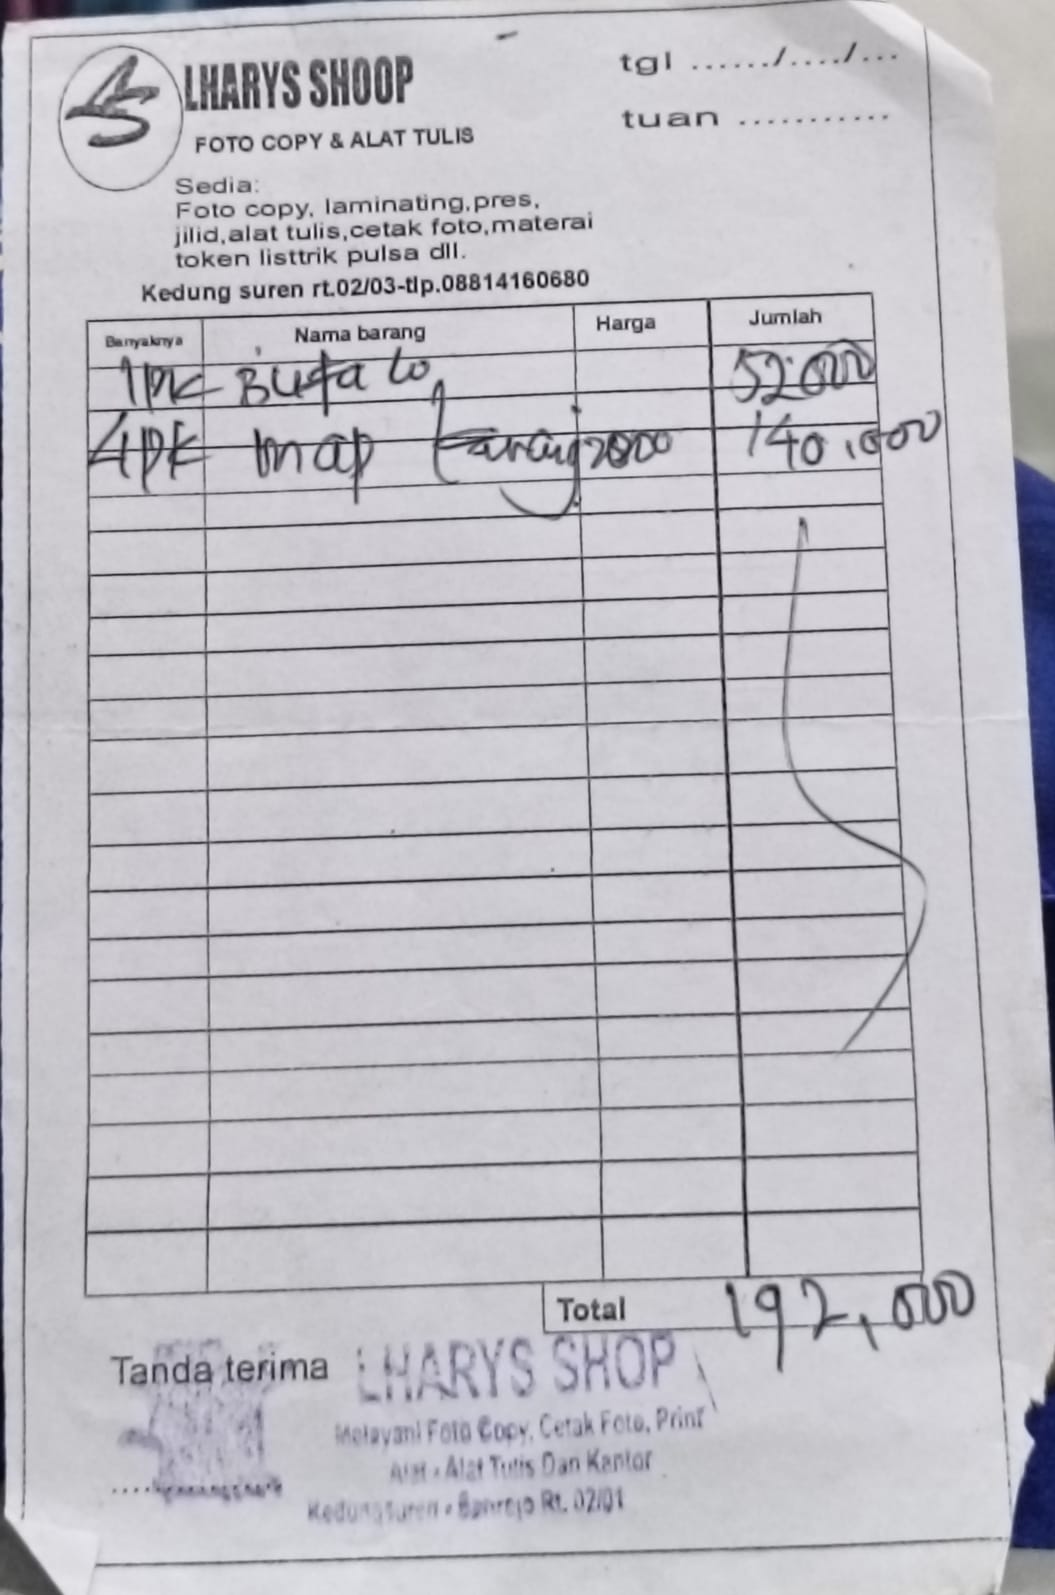 LS
LHARYS SHOOP
FOTO COPY & ALAT TULIS
tgl ....../..../...
tuan ...........
Sedia:
Foto copy, laminating,pres,
jilid,alat tulis,cetak foto,materai
token listtrik pulsa dll.
Kedung suren rt.02/03-tlp.08814160680
Banyaknya Nama barang Harga Jumlah
1pk Bufalo 52.000
4pk map 140.000
Total 192,000
Tanda terima
LHARYS SHOP
Melayani Foto Copy, Cetak Foto, Print
Alat - Alat Tulis Dan Kantor
Kedungsuren - Rt. 02/01